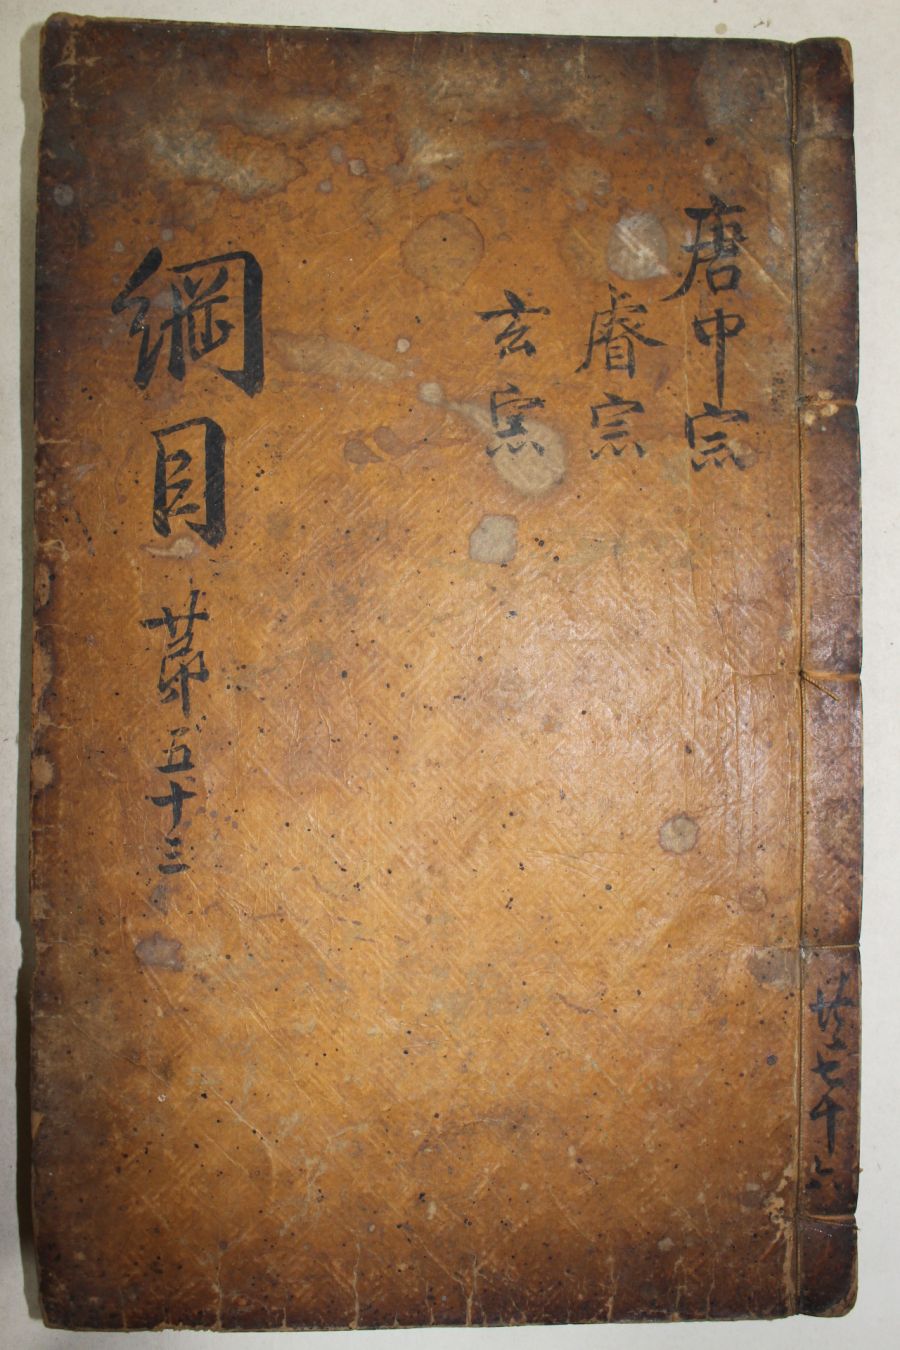 唐中宗
睿宗
玄宗
綱目 苐五十三
共七十六